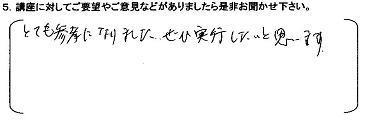 5. 講座に対してご要望やご意見などがありましたら是非お聞かせ下さい。
とても参考になりました。ぜひ実行したいと思います